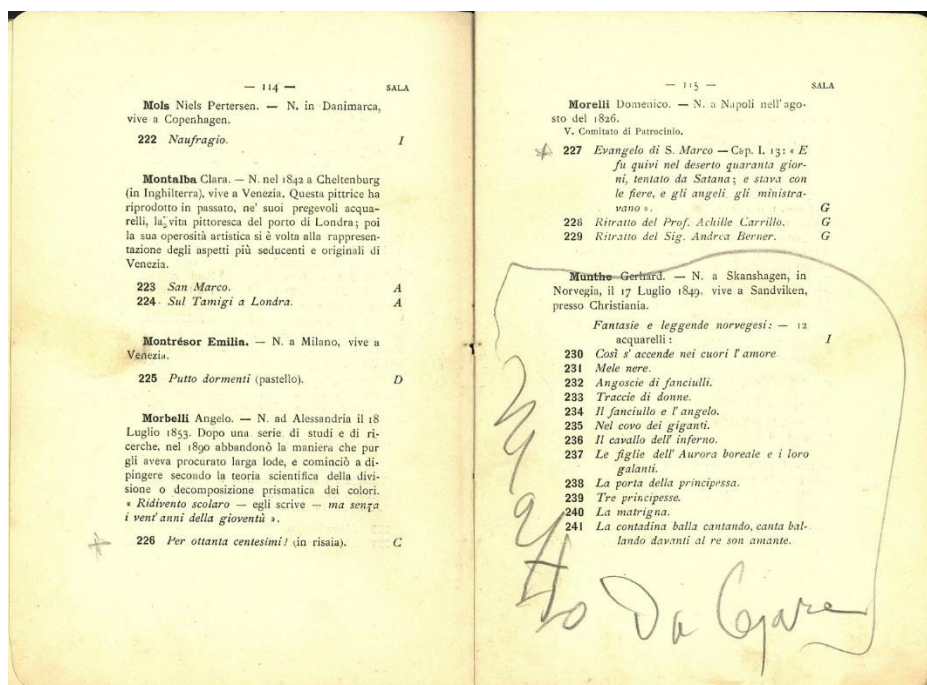 — 114 —
SALA
Mols Niels Pertersen. — N. in Danimarca,
vive a Copenhagen.
222 Naufragio. I
Montalba Clara. — N. nel 1842 a Cheltenburg
(in Inghilterra), vive a Venezia. Questa pittrice ha
riprodotto in passato, ne' suoi pregevoli acqua-
relli, la vita pittoresca del porto di Londra; poi
la sua operosità artistica si è volta alla rappresen-
tazione degli aspetti più seducenti e originali di
Venezia.
223 San Marco. A
224 Sul Tamigi a Londra. A
Montrésor Emilia. — N. a Milano, vive a
Venezia.
225 Putto dormenti (pastello). D
Morbelli Angelo. — N. ad Alessandria il 18
Luglio 1853. Dopo una serie di studi e di ri-
cerche, nel 1890 abbandonò la maniera che pur
gli aveva procurato larga lode, e cominciò a di-
pingere secondo la teoria scientifica della divi-
sione o decomposizione prismatica dei colori.
« Ridivento scolaro — egli scrive — ma senza
i vent' anni della gioventù ».
226 Per ottanta centesimi! (in risaia). C
— 115 —
SALA
Morelli Domenico. — N. a Napoli nell'ago-
sto del 1826.
V. Comitato di Patrocinio.
227 Evangelo di S. Marco — Cap. I. 13: « E
fu quivi nel deserto quaranta gior-
ni, tentato da Satana; e stava con
le fiere, e gli angeli gli ministra-
vano ». G
228 Ritratto del Prof. Achille Carrillo. G
229 Ritratto del Sig. Andrea Berner. G
Munthe Gerhard. — N. a Skanshagen, in
Norvegia, il 17 Luglio 1849. vive a Sandviken,
presso Christiania.
Fantasie e leggende norvegesi: — 12
acquarelli: I
230 Così s' accende nei cuori l' amore
231 Mele nere.
232 Angoscie di fanciulli.
233 Traccie di donne.
234 Il fanciullo e l' angelo.
235 Nel covo dei giganti.
236 Il cavallo dell' inferno.
237 Le figlie dell' Aurora boreale e i loro
galanti.
238 La porta della principessa.
239 Tre principesse.
240 La matrigna.
241 La contadina balla cantando, canta bal-
lando davanti al re son amante.